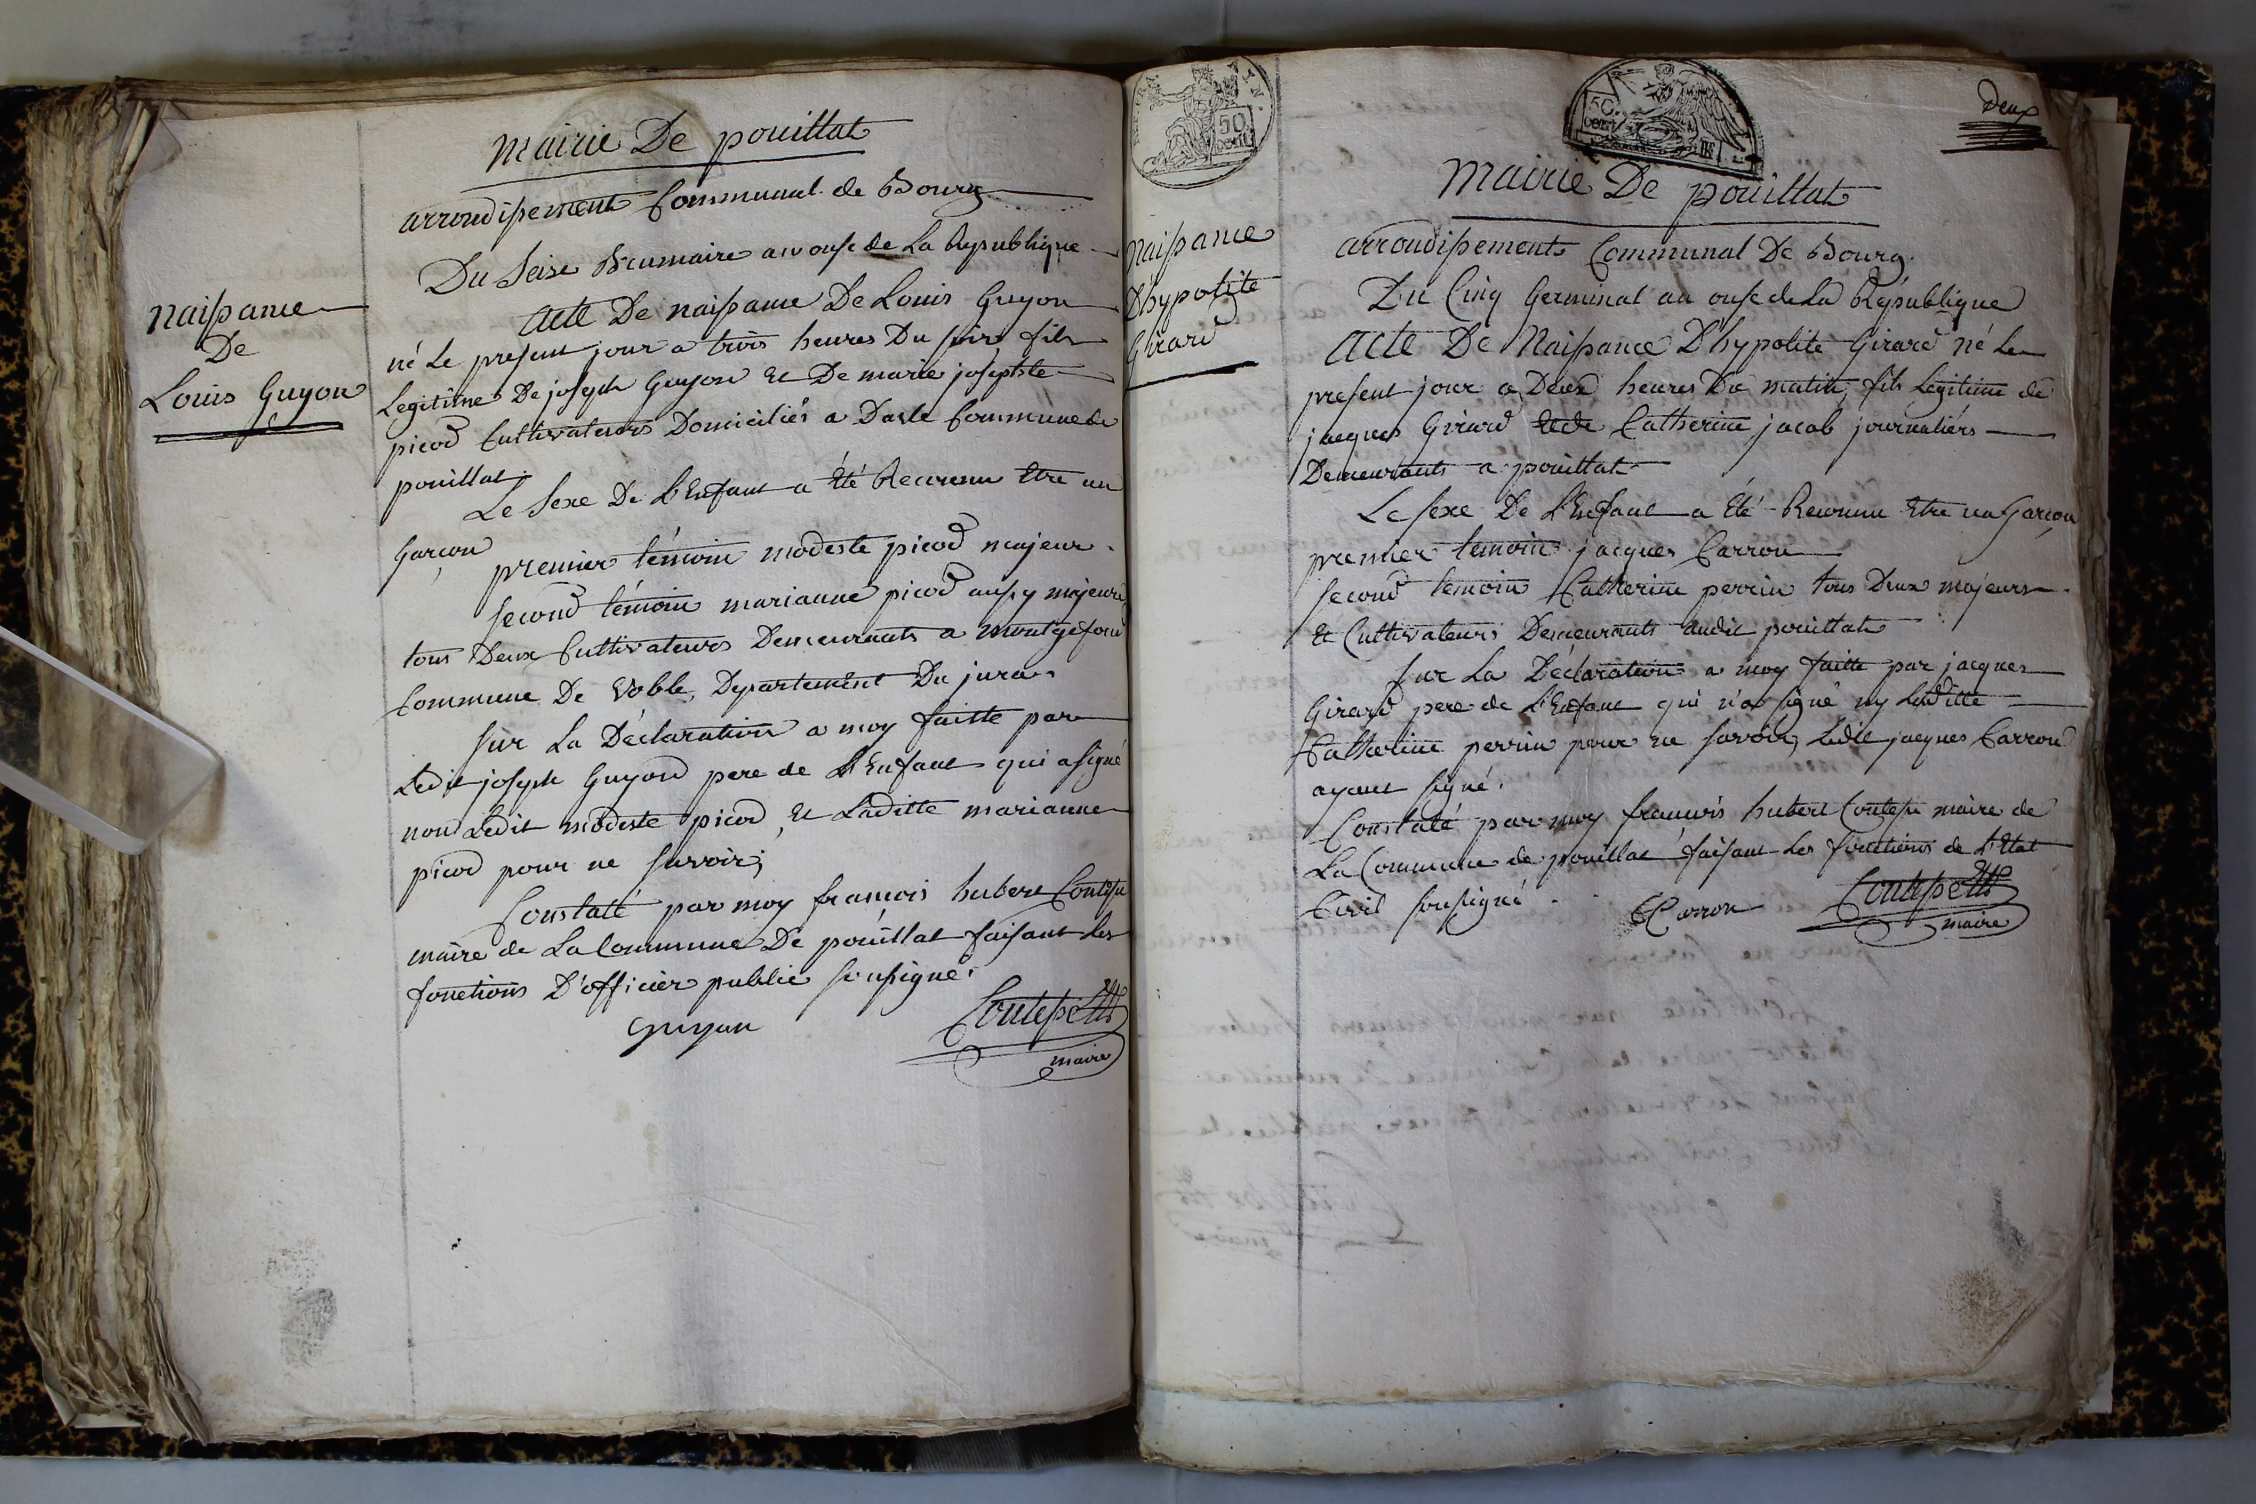 mairie De pouillat
arrondissement Communal de Bourg
Du Seise Brumaire an onse de La Republique
naissance
De
Louis Guyon
acte De naissance De Louis Guyon
né Le present jour a trois heures Du soir, fils
Legitime De joseph Guyon et De marie josephte
picod Cultivateurs Domiciliés a Dasle Commune de
pouillat
Le Sexe De L'Enfant a été Reconnu Etre un
Garçon
premier témoin modeste picod majeur
second témoin marianne picod aussy majeure
tous Deux Cultivateurs Demeurants a montgefond
Commune De Voble, Departement Du jura.
sur La Déclaration a moy faitte par
Ledit joseph Guyon pere de L'Enfant qui a signé
non Ledit modeste picod, et Laditte marianne
picod pour ne savoir;
Constaté par moy francois hubert Contesse
maire de La Commune De pouillat faisant Les
fonctions D'officier public soussigné.
Guyon
maire
50
cent
50
cent
Deux
mairie De pouillat
arrondissements Communal De Bourg.
Du Cinq Germinal an onse de La République
naissance
D'hypolite
Girard
Acte De Naissance D'hypolite Girard né Le
present jour a Deux heures Du matin, fils Légitime de
jacques Girard et de Catherine jacob journaliérs
Demeurants a pouillat
Le sexe De L'Enfant a été Reconnu Etre un Garçon
premier temoin jacques Carron
second temoin Catherine perrin tous Deux majeurs
et Cultivateurs Demeurants audit pouillat
sur La Déclaration a moy faitte par jacques
Girard pere de L'Enfant qui n'a signé ny Laditte
Catherine perrin pour ne savoir, Ledit jacques Carron
ayant signé.
Constaté par moy francois hubert Contesse maire de
La Commune de pouillat faisant Les fonctions de L'Etat
Civil soussigné
Carron
maire